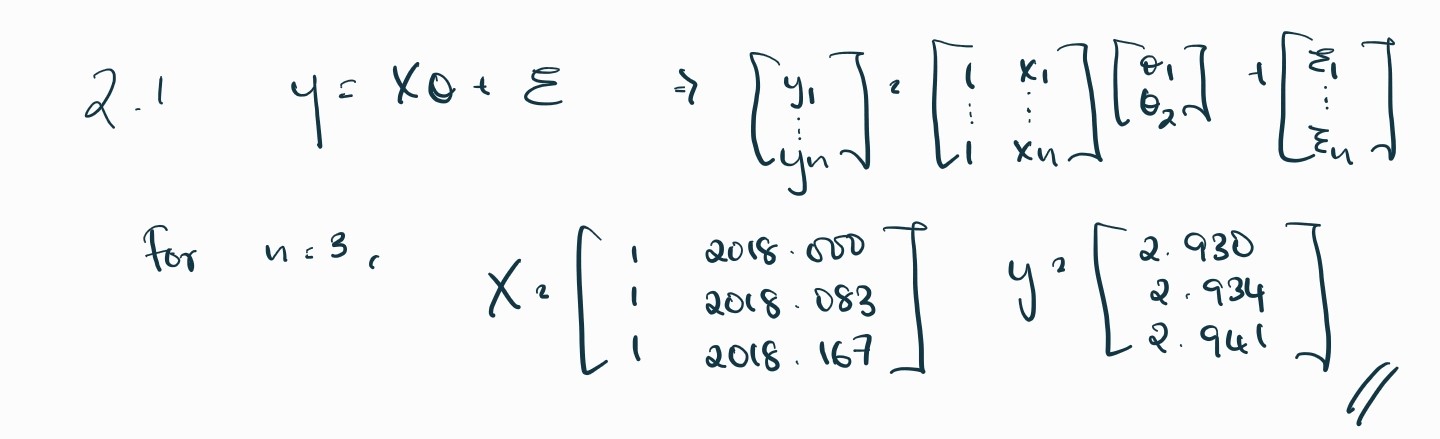 2.1 y = Xθ + ε ⇒ [y₁ ⋮ yₙ] = [1 x₁ ⋮ ⋮ 1 xₙ] [θ₁ θ₂] + [ε₁ ⋮ εₙ]
For n = 3, X = [1 2018.000
1 2018.083
1 2018.167] y = [2.930
2.934
2.941] //